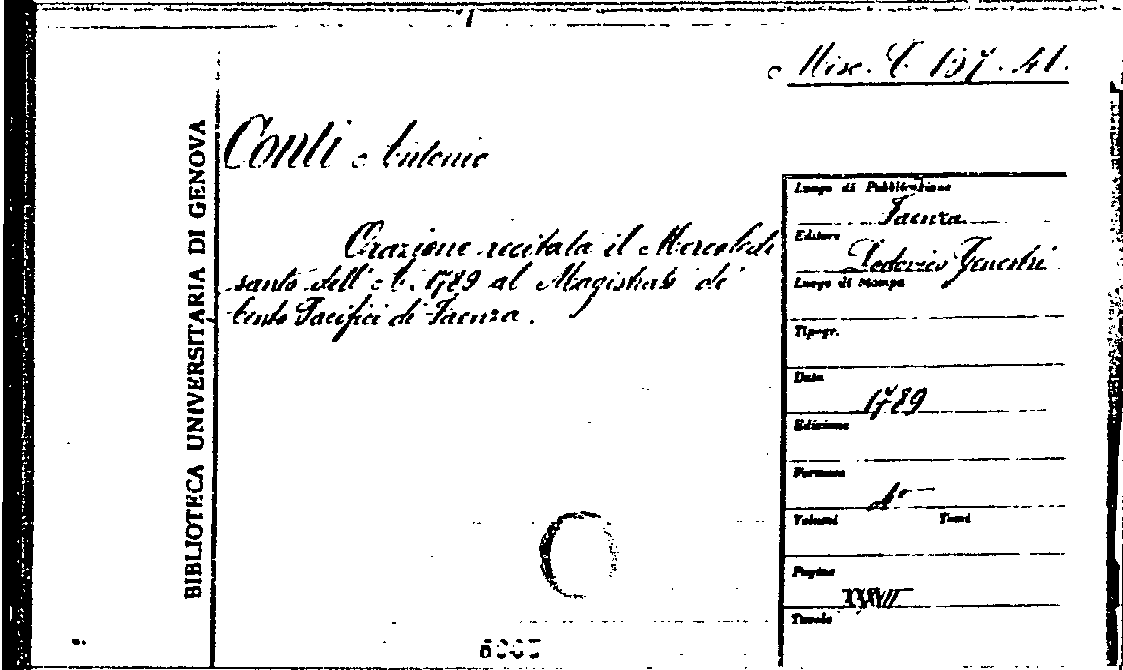 Misc. C. 137. 41.
BIBLIOTECA UNIVERSITARIA DI GENOVA
Conti Antonio
Orazione recitata il Mercoledì
santo dell' A. 1789 al Magistrato di
Cento Pacifici di Faenza.
Luogo di Pubblicazione
Faenza
Editore
Lodovico Genestri
Luogo di Stampa
Tipogr.
Data
1789
Edizione
Formato
Volumi Tomi
Pagine
Tavole